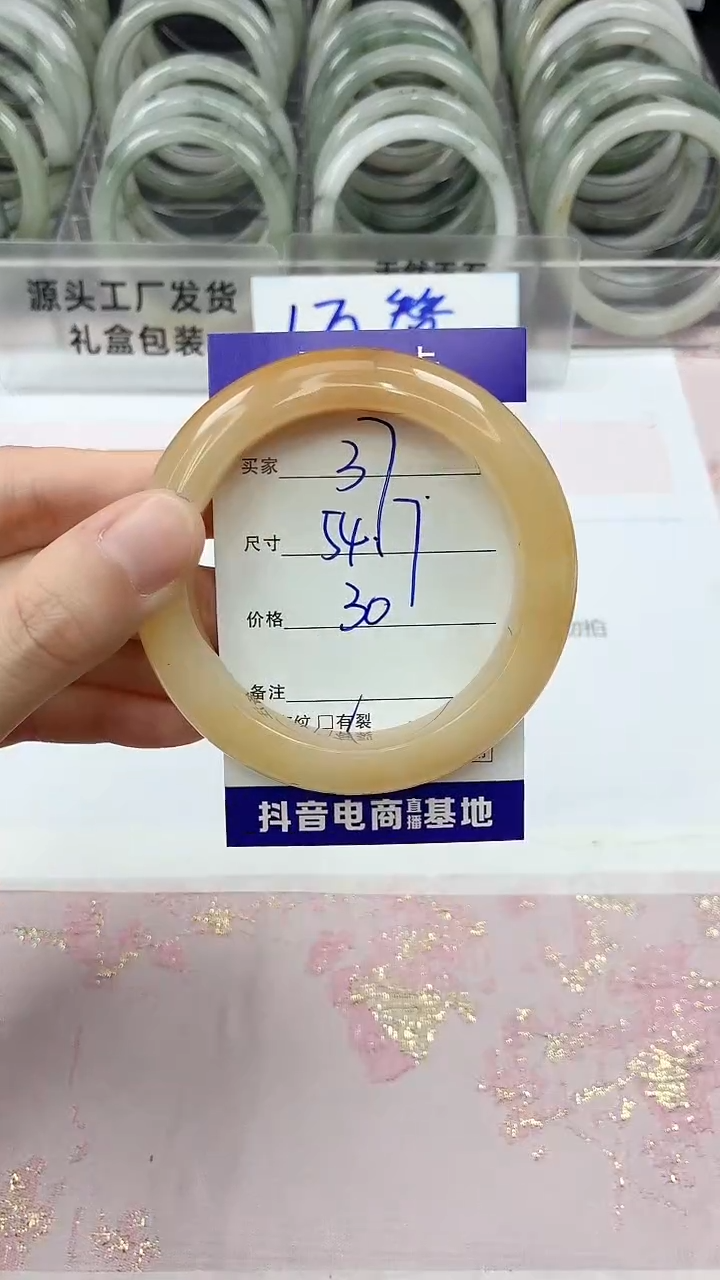 源头工厂发货
礼盒包装
天然玉石
1万赞
买家 37
尺寸 54.7
价格 30
备注
纹 口有裂
抖音电商直播基地